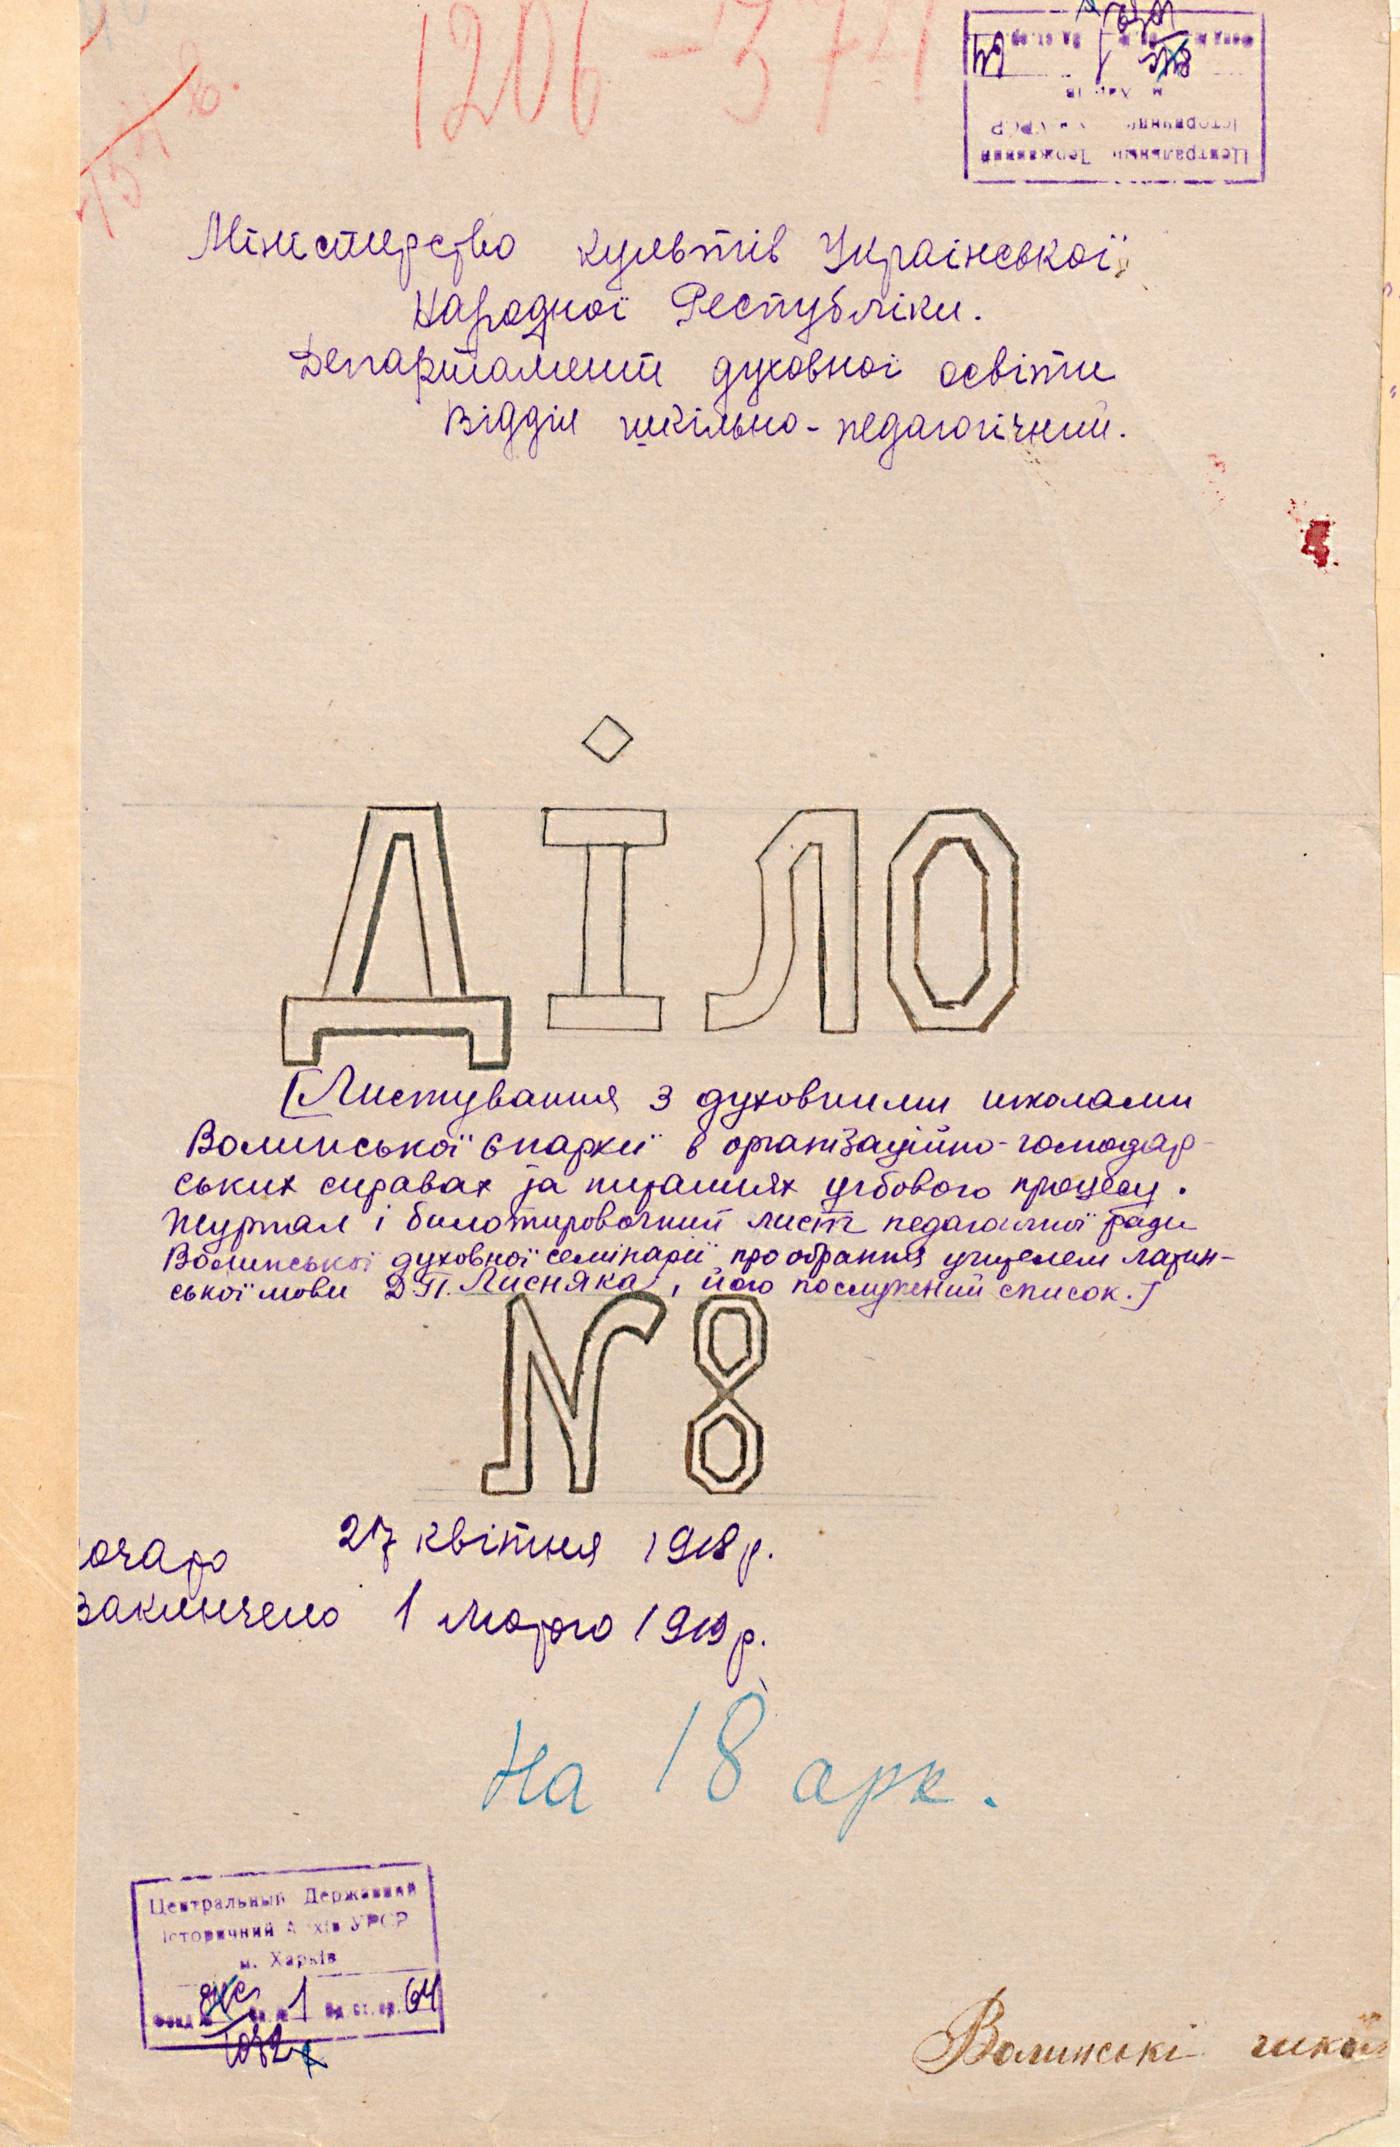 1206-374
Міністерство культів Української
Народної Республіки.
Департамент духовної освіти
Відділ шкільно-педагогічний.
ДІЛО
[Листування з духовними школами
Волинської єпархії в організаційно-господар-
ських справах та питаннях учбового процесу.
Журнал і билотировочний лист педагогичної ради
Волинської духовної семінарії про обрання учителем латин-
ської мови Д.П. Лисняка, його послужний список.]
№ 8
27 квітня 1918 р.
закінчено 1 лютого 1919 р.
На 18 арк.
Центральный Державний
Історичний Архів УРСР
м. Харків
Фонд № Оп. № 1 Од. ст. зр. 64
1072
Волинські